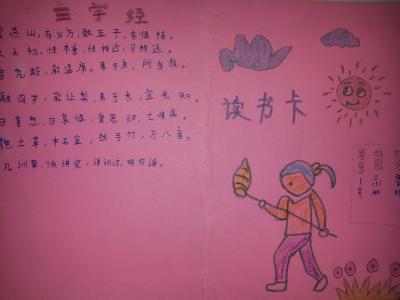 三字经
燕山,有义方,教五子,名俱扬。
人之初,性本善,性相近,习相远。
香九龄,能温席。孝于亲,所当执。
融四岁,能让梨,弟于长,宜先知。
曰喜怒,曰哀惧,爱恶欲,七情具。
匏土革,木石金,丝与竹,乃八音。
凡训蒙,须讲究,详训诂,明句读。
读书卡
学号
1号
班